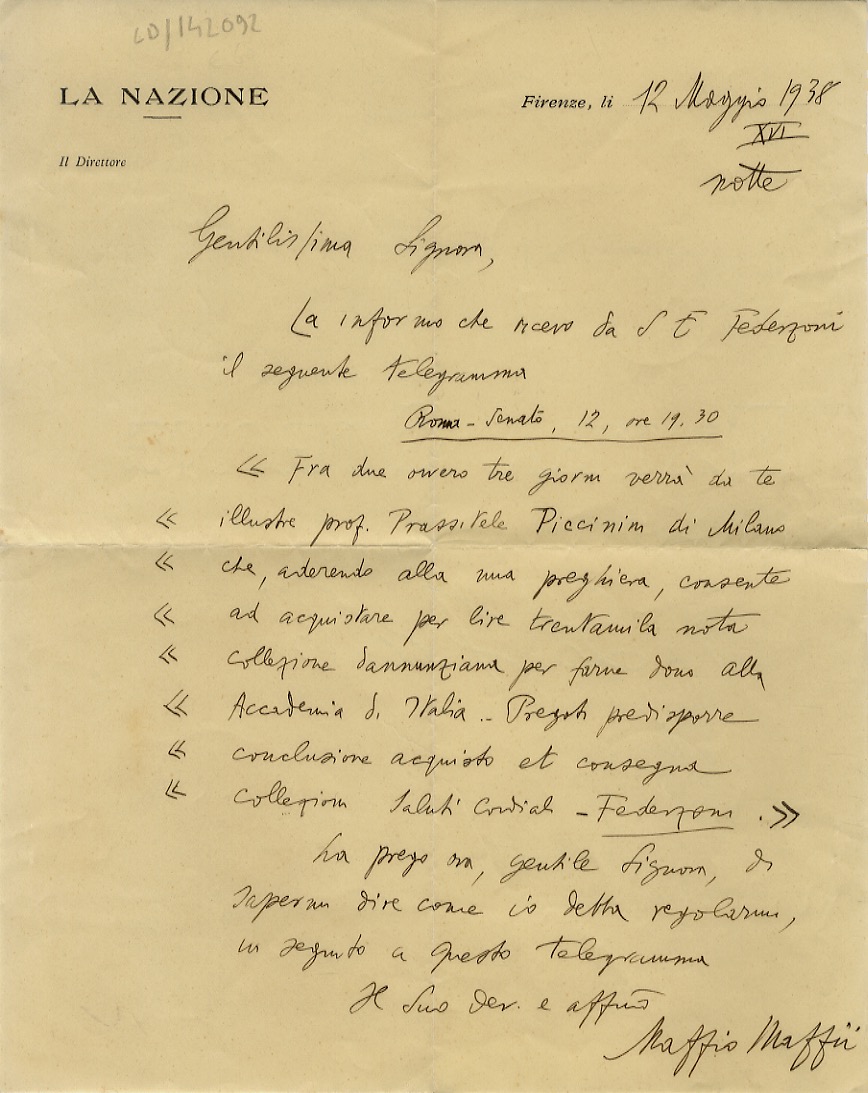 LD/142092
LA NAZIONE
Firenze, li 12 Maggio 1938
XVI
Il Direttore
notte
Gentilissima Signora,
La informo che ricevo da S E Federzoni
il seguente telegramma
Roma - Senato, 12, ore 19.30
« Fra due ovvero tre giorni verrà da te
« illustre prof. Prassitele Piccinini di Milano
« che, aderendo alla mia preghiera, consente
« ad acquistare per lire trentamila nota
« collezione dannunziana per farne dono alla
« Accademia d'Italia.. Pregoti predisporre
« conclusione acquisto et consegna
« collezioni Saluti Cordiali - Federzoni . »
La prego ora, gentile Signora, di
sapermi dire come io debba regolarmi,
in seguito a questo telegramma
Il Suo dev. e affmo
Maffio Maffii